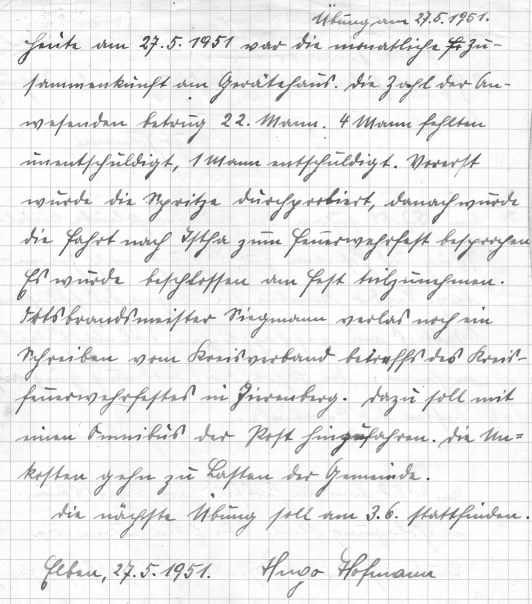 Übung am 27.5.1951.
Heute am 27.5.1951 war die monatliche Zu-
sammenkunft am Gerätehaus. Die Zahl der An-
wesenden betrug 22. Mann. 4 Mann fehlten
unentschuldigt, 1 Mann entschuldigt. Vorerst
wurde die Spritze durchprobiert, danach wurde
die Fahrt nach Istha zum Feuerwehrfest besprochen
Es wurde beschlossen am Fest teilzunehmen.
Ortsbrandmeister Siegmann verlas noch ein
Schreiben vom Kreisverband betreffs des Kreis-
feuerwehrfestes in Zierenberg. Dazu soll mit
einen Omnibus der Post hinzufahren. Die Un-
kosten gehn zu Lasten der Gemeinde.
Die nächste Übung soll am 3.6. stattfinden.
Elben, 27.5.1951. Hugo Hofmann